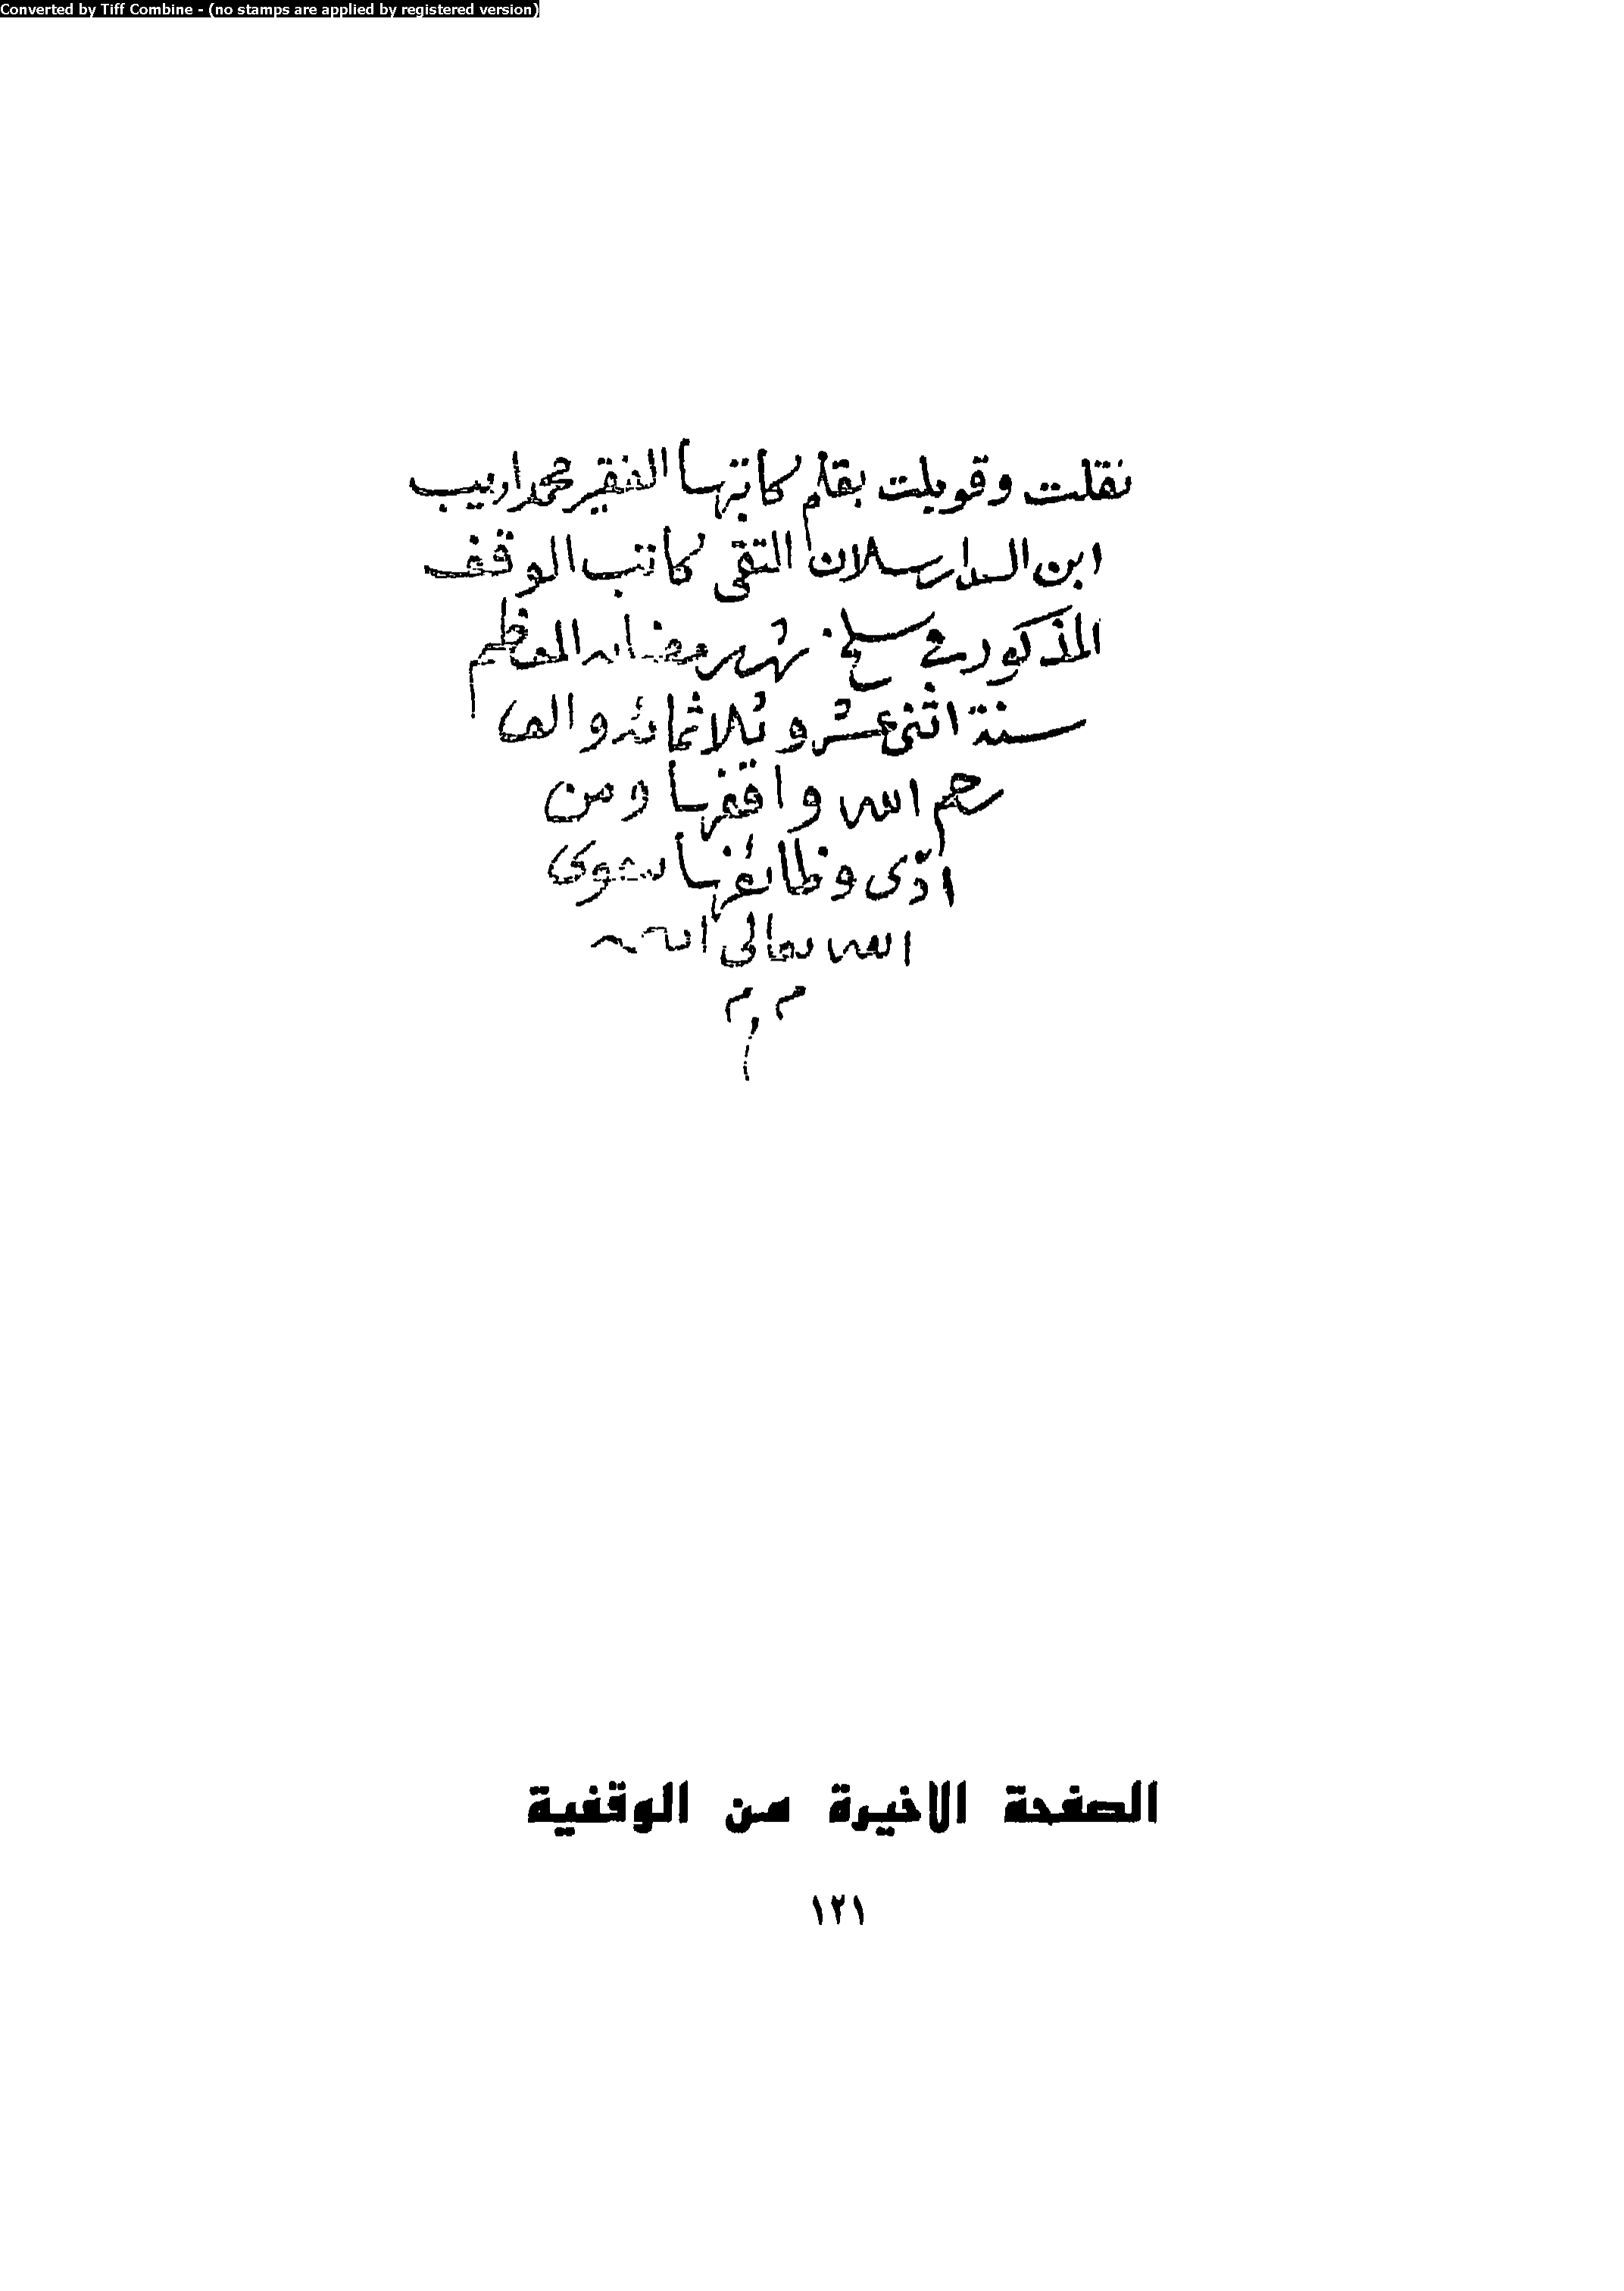 Converted by Tiff Combine - (no stamps are applied by registered version)
نقلت وقوبلت بقلم كاتبها الفقير محمد اديب
ابن السيد ارسلان التقى كاتب الوقف
المذكور في سلخ شهر رمضان المعظم
سنة اثنى عشر وثلاثمائة والف
رحم الله واقفها ومن
ادّى وظائفها بتقوى
الله تعالى
الصفحة الاخيرة من الوقفية
١٢١